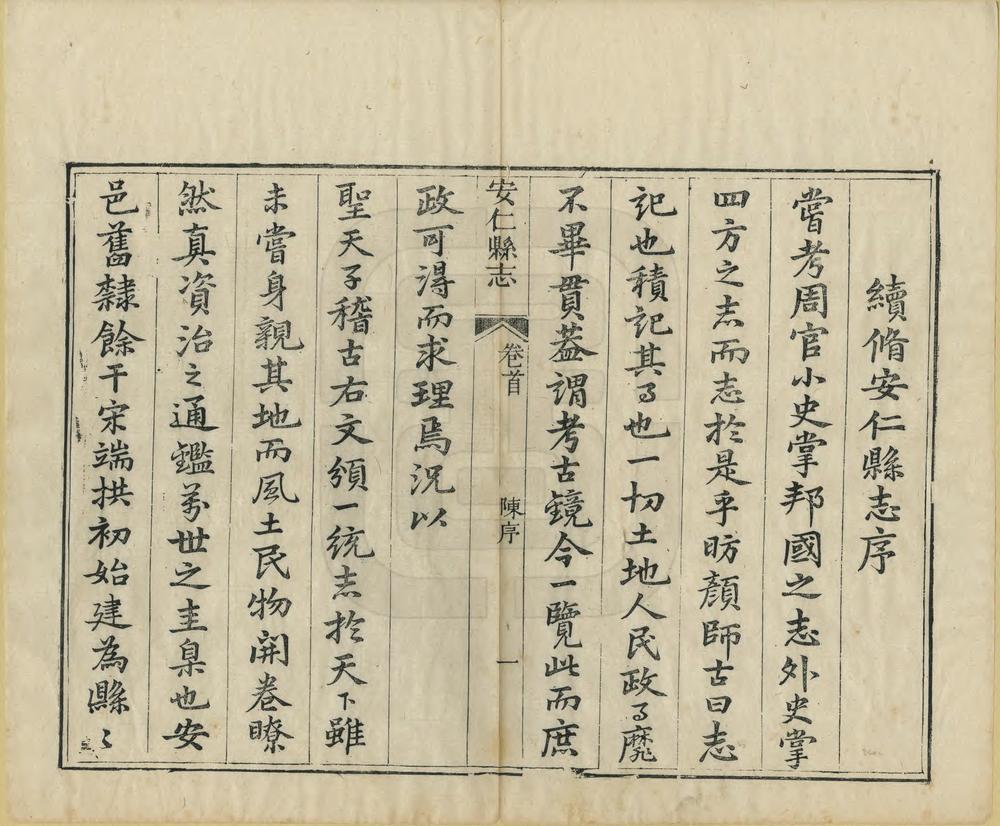 續脩安仁縣志序
嘗考周官小史掌邦國之志外史掌
四方之志而志於是乎昉顔師古曰志
記也積記其事也一切土地人民政事靡
不畢貫葢謂考古鏡今一覽此而庶
政可得而求理焉況以
安仁縣志 卷首 陳序 一
聖天子稽古右文頒一統志於天下雖
未嘗身親其地而風土民物開卷瞭
然真資治之通鑑萬世之圭臬也安
邑舊隸餘干宋端拱初始建為縣〻